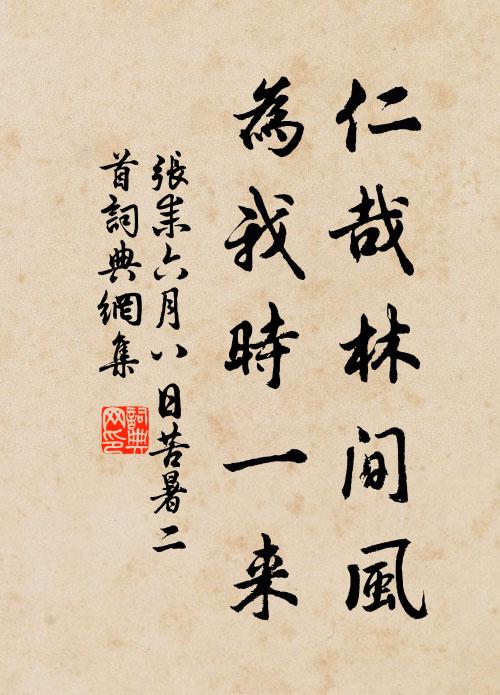 仁哉林間風
為我時一来
張耒六月八日苦暑二
首詞典網集
詞典
网印